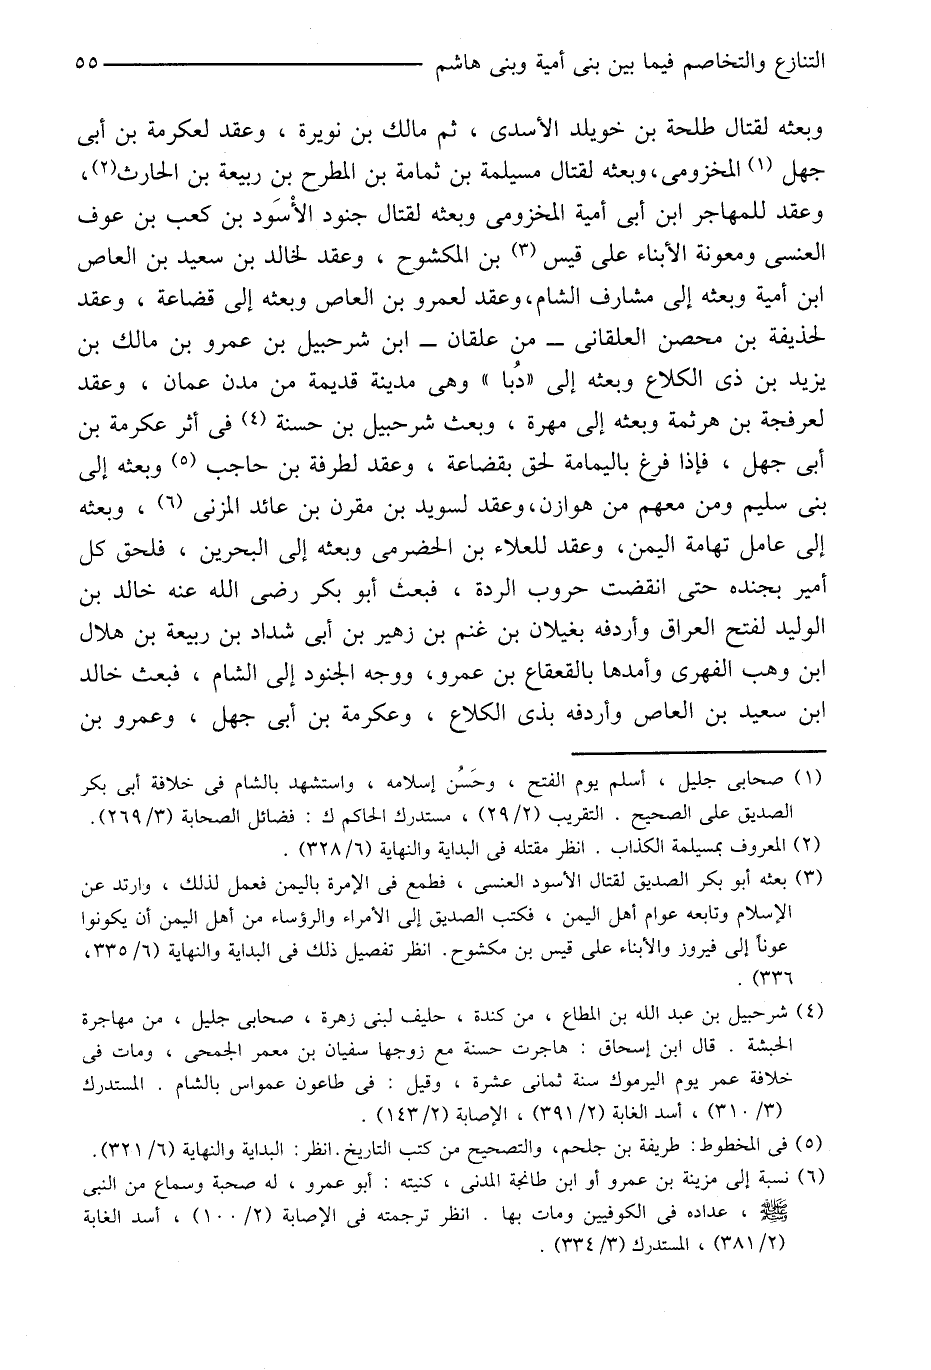 التنازع والتخاصم فيما بين بنى أمية وبنى هاشم ٥٥
وبعثه لقتال طلحة بن خويلد الأسدى ، ثم مالك بن نويرة ، وعقد لعكرمة بن أبى
جهل (١) المخزومى، وبعثه لقتال مسيلمة بن ثمامة بن المطرح بن ربيعة بن الحارث(٢)،
وعقد للمهاجر ابن أبى أمية المخزومى وبعثه لقتال جنود الأسْوَد بن كعب بن عوف
العنسى ومعونة الأبناء على قيس (٣) بن المكشوح ، وعقد لخالد بن سعيد بن العاص
ابن أمية وبعثه إلى مشارف الشام، وعقد لعمرو بن العاص وبعثه إلى قضاعة ، وعقد
لحذيفة بن محصن العلقانى ــ من علقان ــ ابن شرحبيل بن عمرو بن مالك بن
يزيد بن ذى الكلاع وبعثه إلى «دُبا » وهى مدينة قديمة من مدن عمان ، وعقد
لعرفجة بن هرثمة وبعثه إلى مهرة ، وبعث شرحبيل بن حسنة (٤) فى أثر عكرمة بن
أبى جهل ، فإذا فرغ باليمامة لحق بقضاعة ، وعقد لطرفة بن حاجب (٥) وبعثه إلى
بنى سليم ومن معهم من هوازن، وعقد لسويد بن مقرن بن عائد المزنى (٦) ، وبعثه
إلى عامل تهامة اليمن، وعقد للعلاء بن الحضرمى وبعثه إلى البحرين ، فلحق كل
أمير بجنده حتى انقضت حروب الردة ، فبعث أبو بكر رضى الله عنه خالد بن
الوليد لفتح العراق وأردفه بغيلان بن غنم بن زهير بن أبى شداد بن ربيعة بن هلال
ابن وهب الفهرى وأمدها بالقعقاع بن عمرو، ووجه الجنود إلى الشام ، فبعث خالد
ابن سعيد بن العاص وأردفه بذى الكلاع ، وعكرمة بن أبى جهل ، وعمرو بن
(١) صحابى جليل ، أسلم يوم الفتح ، وحَسُن إسلامه ، واستشهد بالشام فى خلافة أبى بكر
الصديق على الصحيح . التقريب (٢/ ٢٩) ، مستدرك الحاكم ك : فضائل الصحابة (٣/ ٢٦٩).
(٢) المعروف بمسيلمة الكذاب . انظر مقتله فى البداية والنهاية (٦/ ٣٢٨) .
(٣) بعثه أبو بكر الصديق لقتال الأسود العنسى ، فطمع فى الإمرة باليمن فعمل لذلك ، وارتد عن
الإسلام وتابعه عوام أهل اليمن ، فكتب الصديق إلى الأمراء والرؤساء من أهل اليمن أن يكونوا
عوناً إلى فيروز والأبناء على قيس بن مكشوح. انظر تفصيل ذلك فى البداية والنهاية (٦/ ٣٣٥،
٣٣٦) .
(٤) شرحبيل بن عبد الله بن المطاع ، من كندة ، حليف لبنى زهرة ، صحابى جليل ، من مهاجرة
الحبشة . قال ابن إسحاق : هاجرت حسنة مع زوجها سفيان بن معمر الجمحى ، ومات فى
خلافة عمر يوم اليرموك سنة ثمانى عشرة ، وقيل : فى طاعون عمواس بالشام . المستدرك
(٣/ ٣١٠) ، أسد الغابة (٢/ ٣٩١) ، الإصابة (٢/ ١٤٣) .
(٥) فى المخطوط: طريفة بن جلحم، والتصحيح من كتب التاريخ. انظر: البداية والنهاية (٦/ ٣٢١).
(٦) نسبة إلى مزينة بن عمرو أو ابن طانجة المدنى ، كنيته : أبو عمرو ، له صحبة وسماع من النبى
ﷺ ، عداده فى الكوفيين ومات بها . انظر ترجمته فى الإصابة (٢/ ١٠٠) ، أسد الغابة
(٢/ ٣٨١) ، المستدرك (٣/ ٣٣٤) .